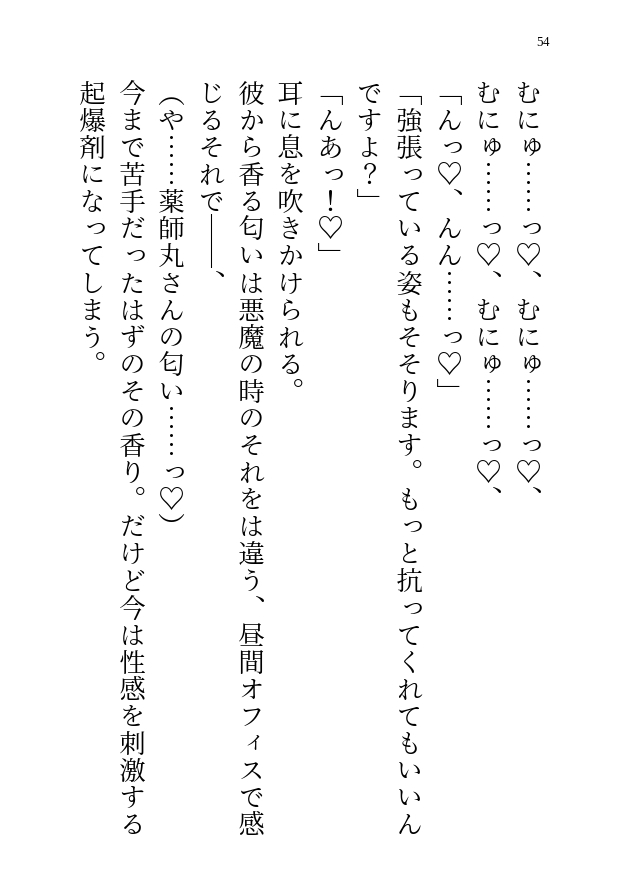 54
むにゅ……っ♡、むにゅ……っ♡、
むにゅ……っ♡、むにゅ……っ♡、
「んっ♡、んん……っ♡」
「強張っている姿もそそります。もっと抗ってくれてもいいん
ですよ？」
「んあっ！♡」
耳に息を吹きかけられる。
彼から香る匂いは悪魔の時のそれをは違う、昼間オフィスで感
じるそれで――、
（や……薬師丸さんの匂い……っ♡）
今まで苦手だったはずのその香り。だけど今は性感を刺激する
起爆剤になってしまう。